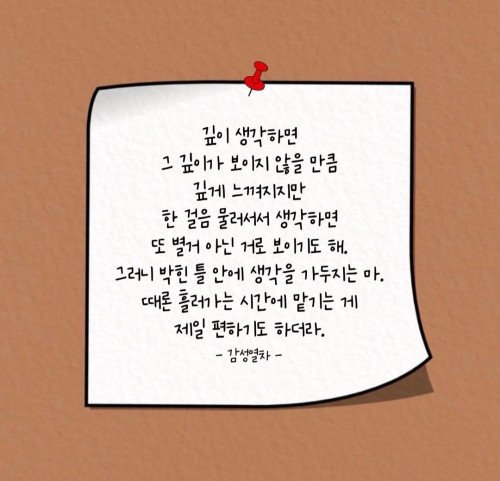 깊이 생각하면
그 깊이가 보이지 않을 만큼
깊게 느껴지지만
한 걸음 물러서서 생각하면
또 별거 아닌 거로 보이기도 해.
그러니 박힌 틀 안에 생각을 가두지는 마.
때론 흘러가는 시간에 맡기는 게
제일 편하기도 하더라.
- 감성열차 -